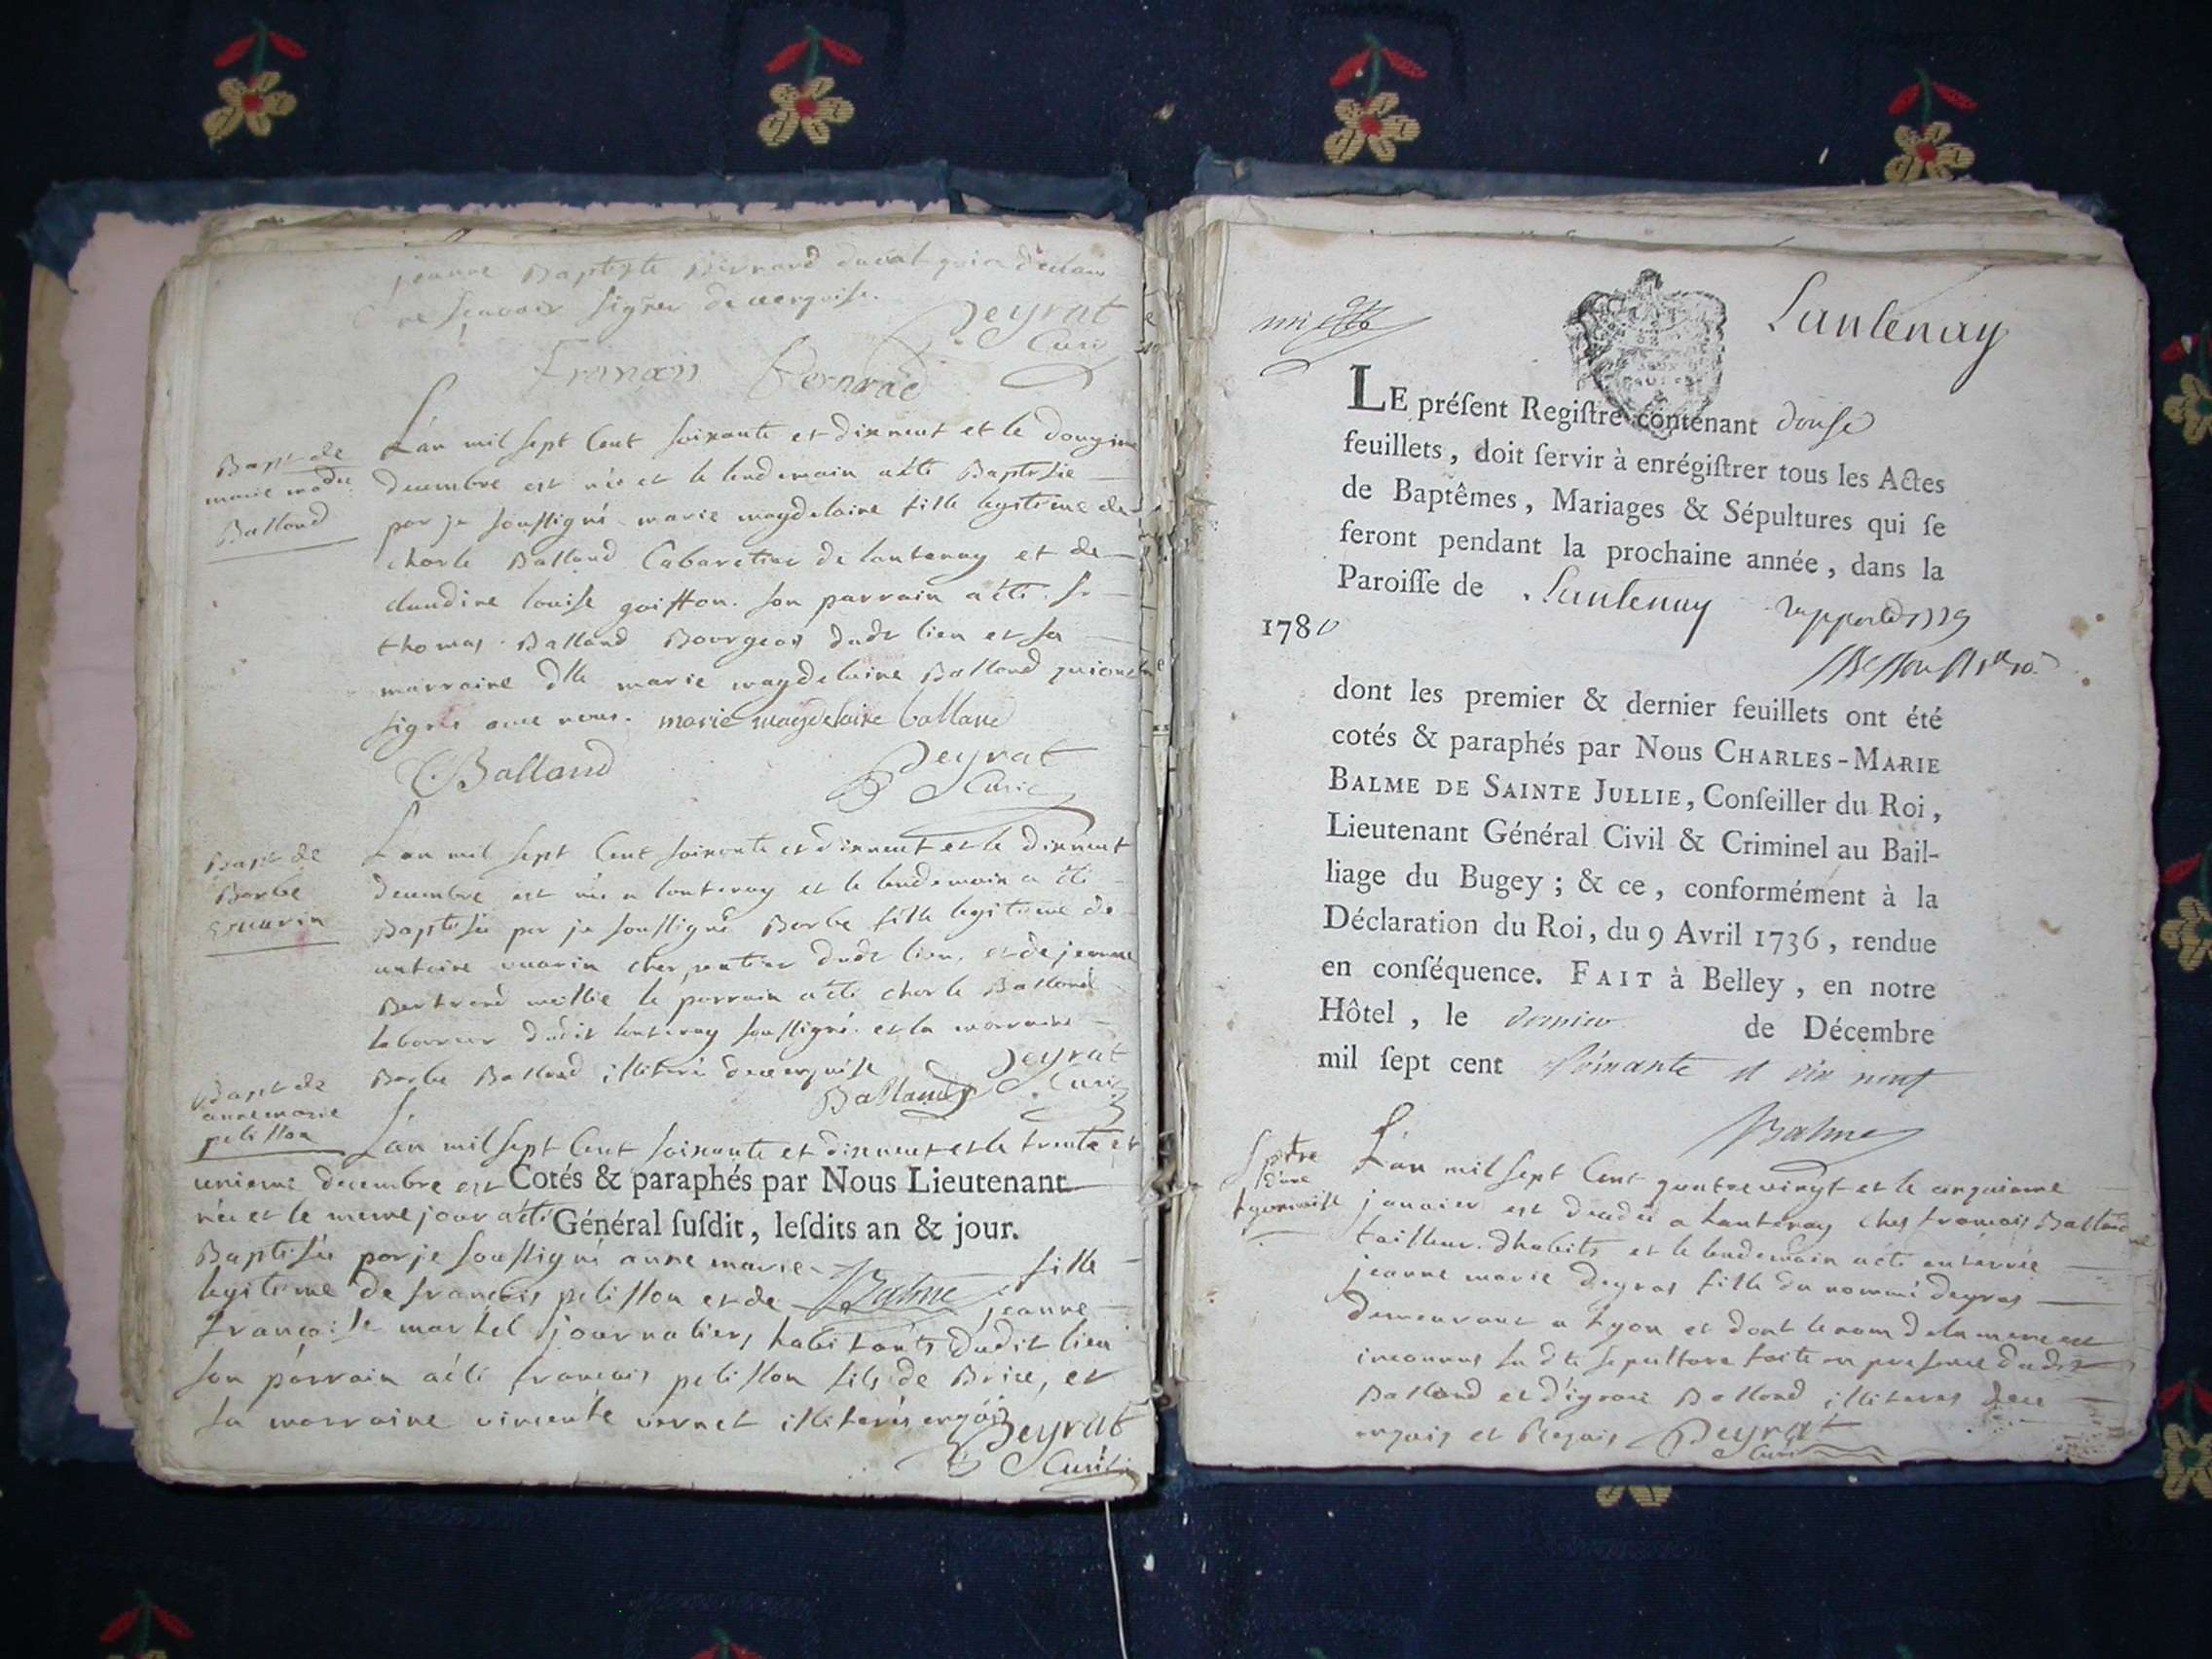 jeanne Baptiste Bernard
ne sçavoir signer de ce enquise.
Peyrat
Curé
François Bernrad
Bapt de
marie made
Balland
L'an mil sept Cent soixante et dixneuf et le
decembre est née et le lendemain a été Baptisée
par je soussigné marie magdelaine fille legitime de
charle Balland Cabaretier de lantenay et de
claudine louise goiffon. son parrain a été. sr
thomas Balland Bourgeois dudt lieu et sa
marraine dlle marie magdelaine Balland qui ont
signés avec nous. marie magdelaine balland
Balland
Peyrat
Curé
Bapt de
Barbe
L'an mil sept Cent soixante et dixneuf et le dixneuf
decembre est née a lantenay et le lendemain a été
Baptisée par je soussigné Barbe fille legitime de
antoine charpentier dudt lieu, et de jeanne
le parrain a été charle Balland
laboureur dudit lantenay soussigné. et la marraine
Barbe Balland illiteré de ce enquise
Peyrat
Balland
Curé
Bapt de
anne marie
pelisson
L'an mil sept Cent soixante et dixneuf et le trente et
unieme decembre est Cotés & paraphés par Nous Lieutenant
née et le meme jour a été Général ſuſdit, leſdits an & jour.
Baptisée par je soussigné anne marie fille
legitime de françois pelisson et de Balme jeanne
françoise martel journaliers habitants dudit lieu
son parrain a été françois pelisson fils de Brice, et
sa marraine vincente vernet illiterés enquis
Peyrat
Curé
Lantenay
LE préſent Regiſtre contenant douse
feuillets, doit ſervir à enrégiſtrer tous les Actes
de Baptêmes, Mariages & Sépultures qui ſe
feront pendant la prochaine année, dans la
Paroiſſe de Lantenay
1780
dont les premier & dernier feuillets ont été
cotés & paraphés par Nous CHARLES-MARIE
BALME DE SAINTE JULLIE, Conſeiller du Roi,
Lieutenant Général Civil & Criminel au Bail-
liage du Bugey; & ce, conformément à la
Déclaration du Roi, du 9 Avril 1736, rendue
en conſéquence. FAIT à Belley, en notre
Hôtel, le dernier de Décembre
mil ſept cent soixante et dix neuf
Balme
Sptre
d'une
lyonnoise
L'an mil sept Cent quatre vingt et le cinquieme
janvier est decedée a lantenay chez françois Balland
tailleur d'habits et le lendemain a été enterrée
jeanne marie deyras fille du nommé deyras
demeurant a Lyon et dont le nom de la mere est
inconnus sudte sepulture faite en presence dudt
Balland et d'ignace Balland illiteres de ce
enquis et Requis Peyrat
Curé